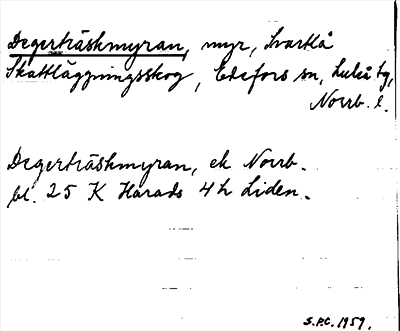 Degerträskmyran, myr, Svartlå
Skattläggningsskog, Edefors sn, Luleå tg,
Norrb. l.
Degerträskmyran, ek Norrb.
bl. 25 K Harads 4 h Liden.
S.P.C. 1959.